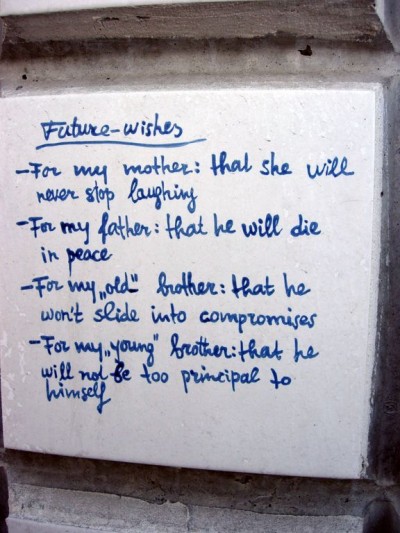 Future-wishes
-For my mother: that she will
never stop laughing
-For my father: that he will die
in peace
-For my „old" brother: that he
won't slide into compromises
-For my „young" brother: that he
will not be too principal to
himself